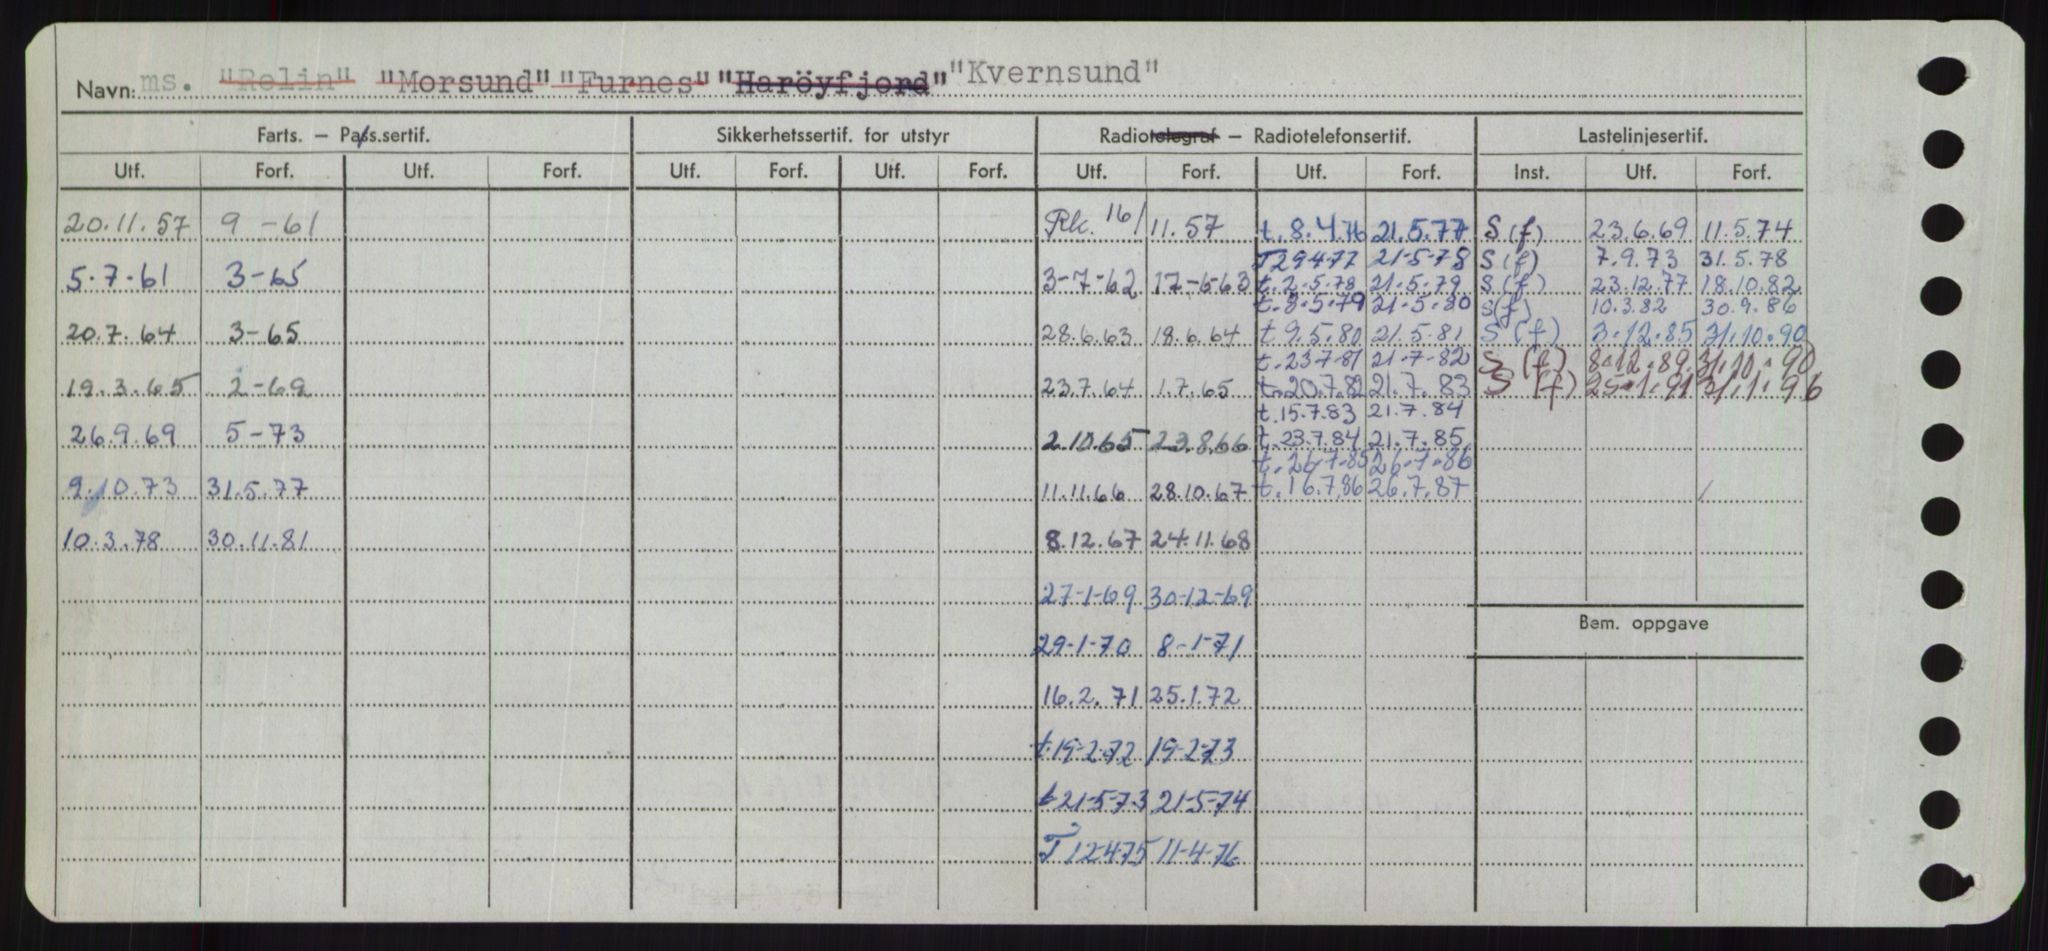 Navn: ms. "Relin" "Morsund" "Furnes" "Haröyfjord" "Kvernsund"
Farts. – Pass.sertif. Sikkerhetssertif. for utstyr Radiotelegraf – Radiotelefonsertif. Lastelinjesertif.
Utf. Forf. Utf. Forf. Utf. Forf. Utf. Forf. Utf. Forf. Utf. Forf. Inst. Utf. Forf.
20.11.57 9-61 Rk. 16/11.57 t.8.4.76 21.5.77 S(f) 23.6.69 11.5.74
T29477 21-5-78 S(f) 7.9.73 31.5.78
5.7.61 3-65 3-7-62 17-6-63 t.2.5.78 21.5.79 S(f) 23.12.77 18.10.82
t.8.5.79 21.5.80 S(f) 10.3.82 30.9.86
20.7.64 3-65 28.6.63 18.6.64 t 9.5.80 21.5.81 S(f) 3.12.85 31.10.90
t.23.7.81 21-7-82 S(f) 8.12.89 31.10.90
19.3.65 2-69 23.7.64 1.7.65 t.20.7.82 21.7.83 S(f) 25.1.91 31.1.96
t.15.7.83 21.7.84
26.9.69 5-73 2.10.65 23.8.66 t.23.7.84 21.7.85
t.26.7.85 26.7.86
9.10.73 31.5.77 11.11.66 28.10.67 t.16.7.86 26.7.87
10.3.78 30.11.81 8.12.67 24.11.68
27-1-69 30-12-69
Bem. oppgave
29-1-70 8-1-71
16.2.71 25.1.72
t.19-2-72 19-2-73
t21-5-73 21-5-74
T 12475 11-4-76